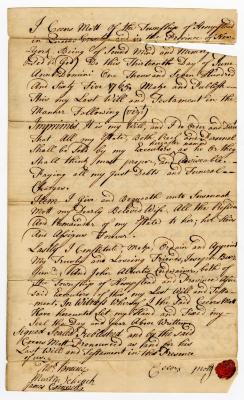 I Evens Mott of the Township of Hempstead
in Queens County and in the Province of New
York Being of Sound Mind and Memory
this Thirteenth Day of June
Anno Domini One Thousand Seven Hundred
and Sixty Five 1765 Make and Publish
this my Last Will and Testament in the
Manner Following (viz)
Imprimis It is my Will, and I do order and
that all my Estate Both Real and Personal
Shall be Sold by my Executors as he or they
Shall think most proper
Paying all my Just Debts and Funeral
Charges
Item I Give and Bequeath unto Susannah
Mott my Dearly Beloved Wife All the Residue
and Remainder of my Estate to her, her Heirs
and Assigns Forever
Lastly I Constitute, Make, Ordain and Appoint
My Trusty and Loving Friends Joseph
and John both of
the Township of Hempstead and Province afore
Said Executors of this my Last Will and Testa
ment In Witness Whereof I the Said Evens Mott
Have hereunto Set my Hand and
Seal the Day and Year Above Written
Signed Sealed Published and by the Said
Evens Mott Pronounced as and for his
Last Will and Testament in the Presence
of us
Evens Mott